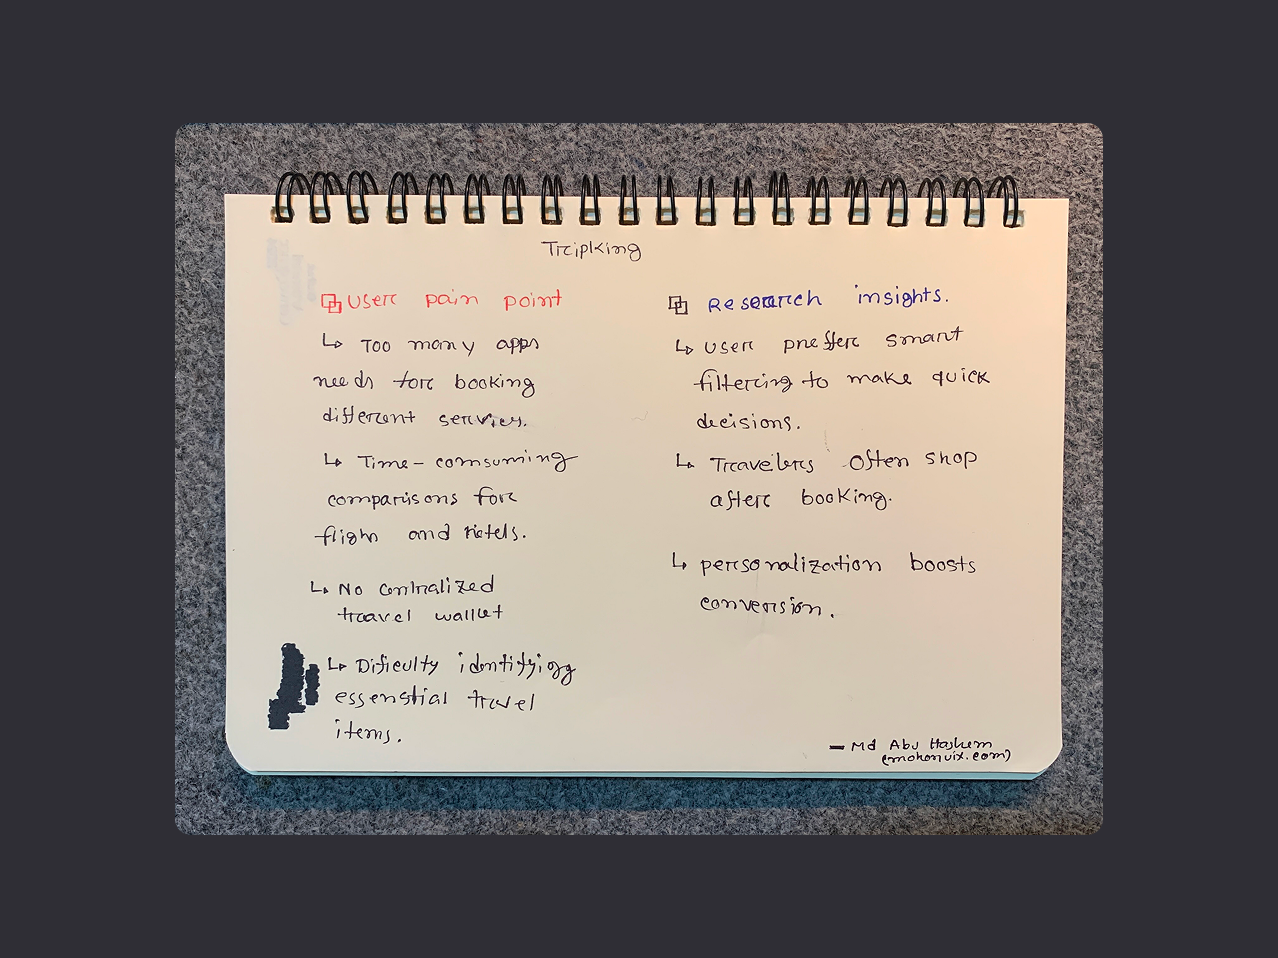 Tripking
User pain point
↳ Too many apps
needs for booking
different services.
↳ Time-comsuming
comparisons for
fligh and hotels.
↳ No centralized
travel wallet
↳ Dificulty identifying
essenstial travel
items.
Research insights.
↳ User preffer smart
filtering to make quick
decisions.
↳ Travelers often shop
after booking.
↳ personalization boosts
conversion.
— Md Abu Hashem
(mohonuix.com)